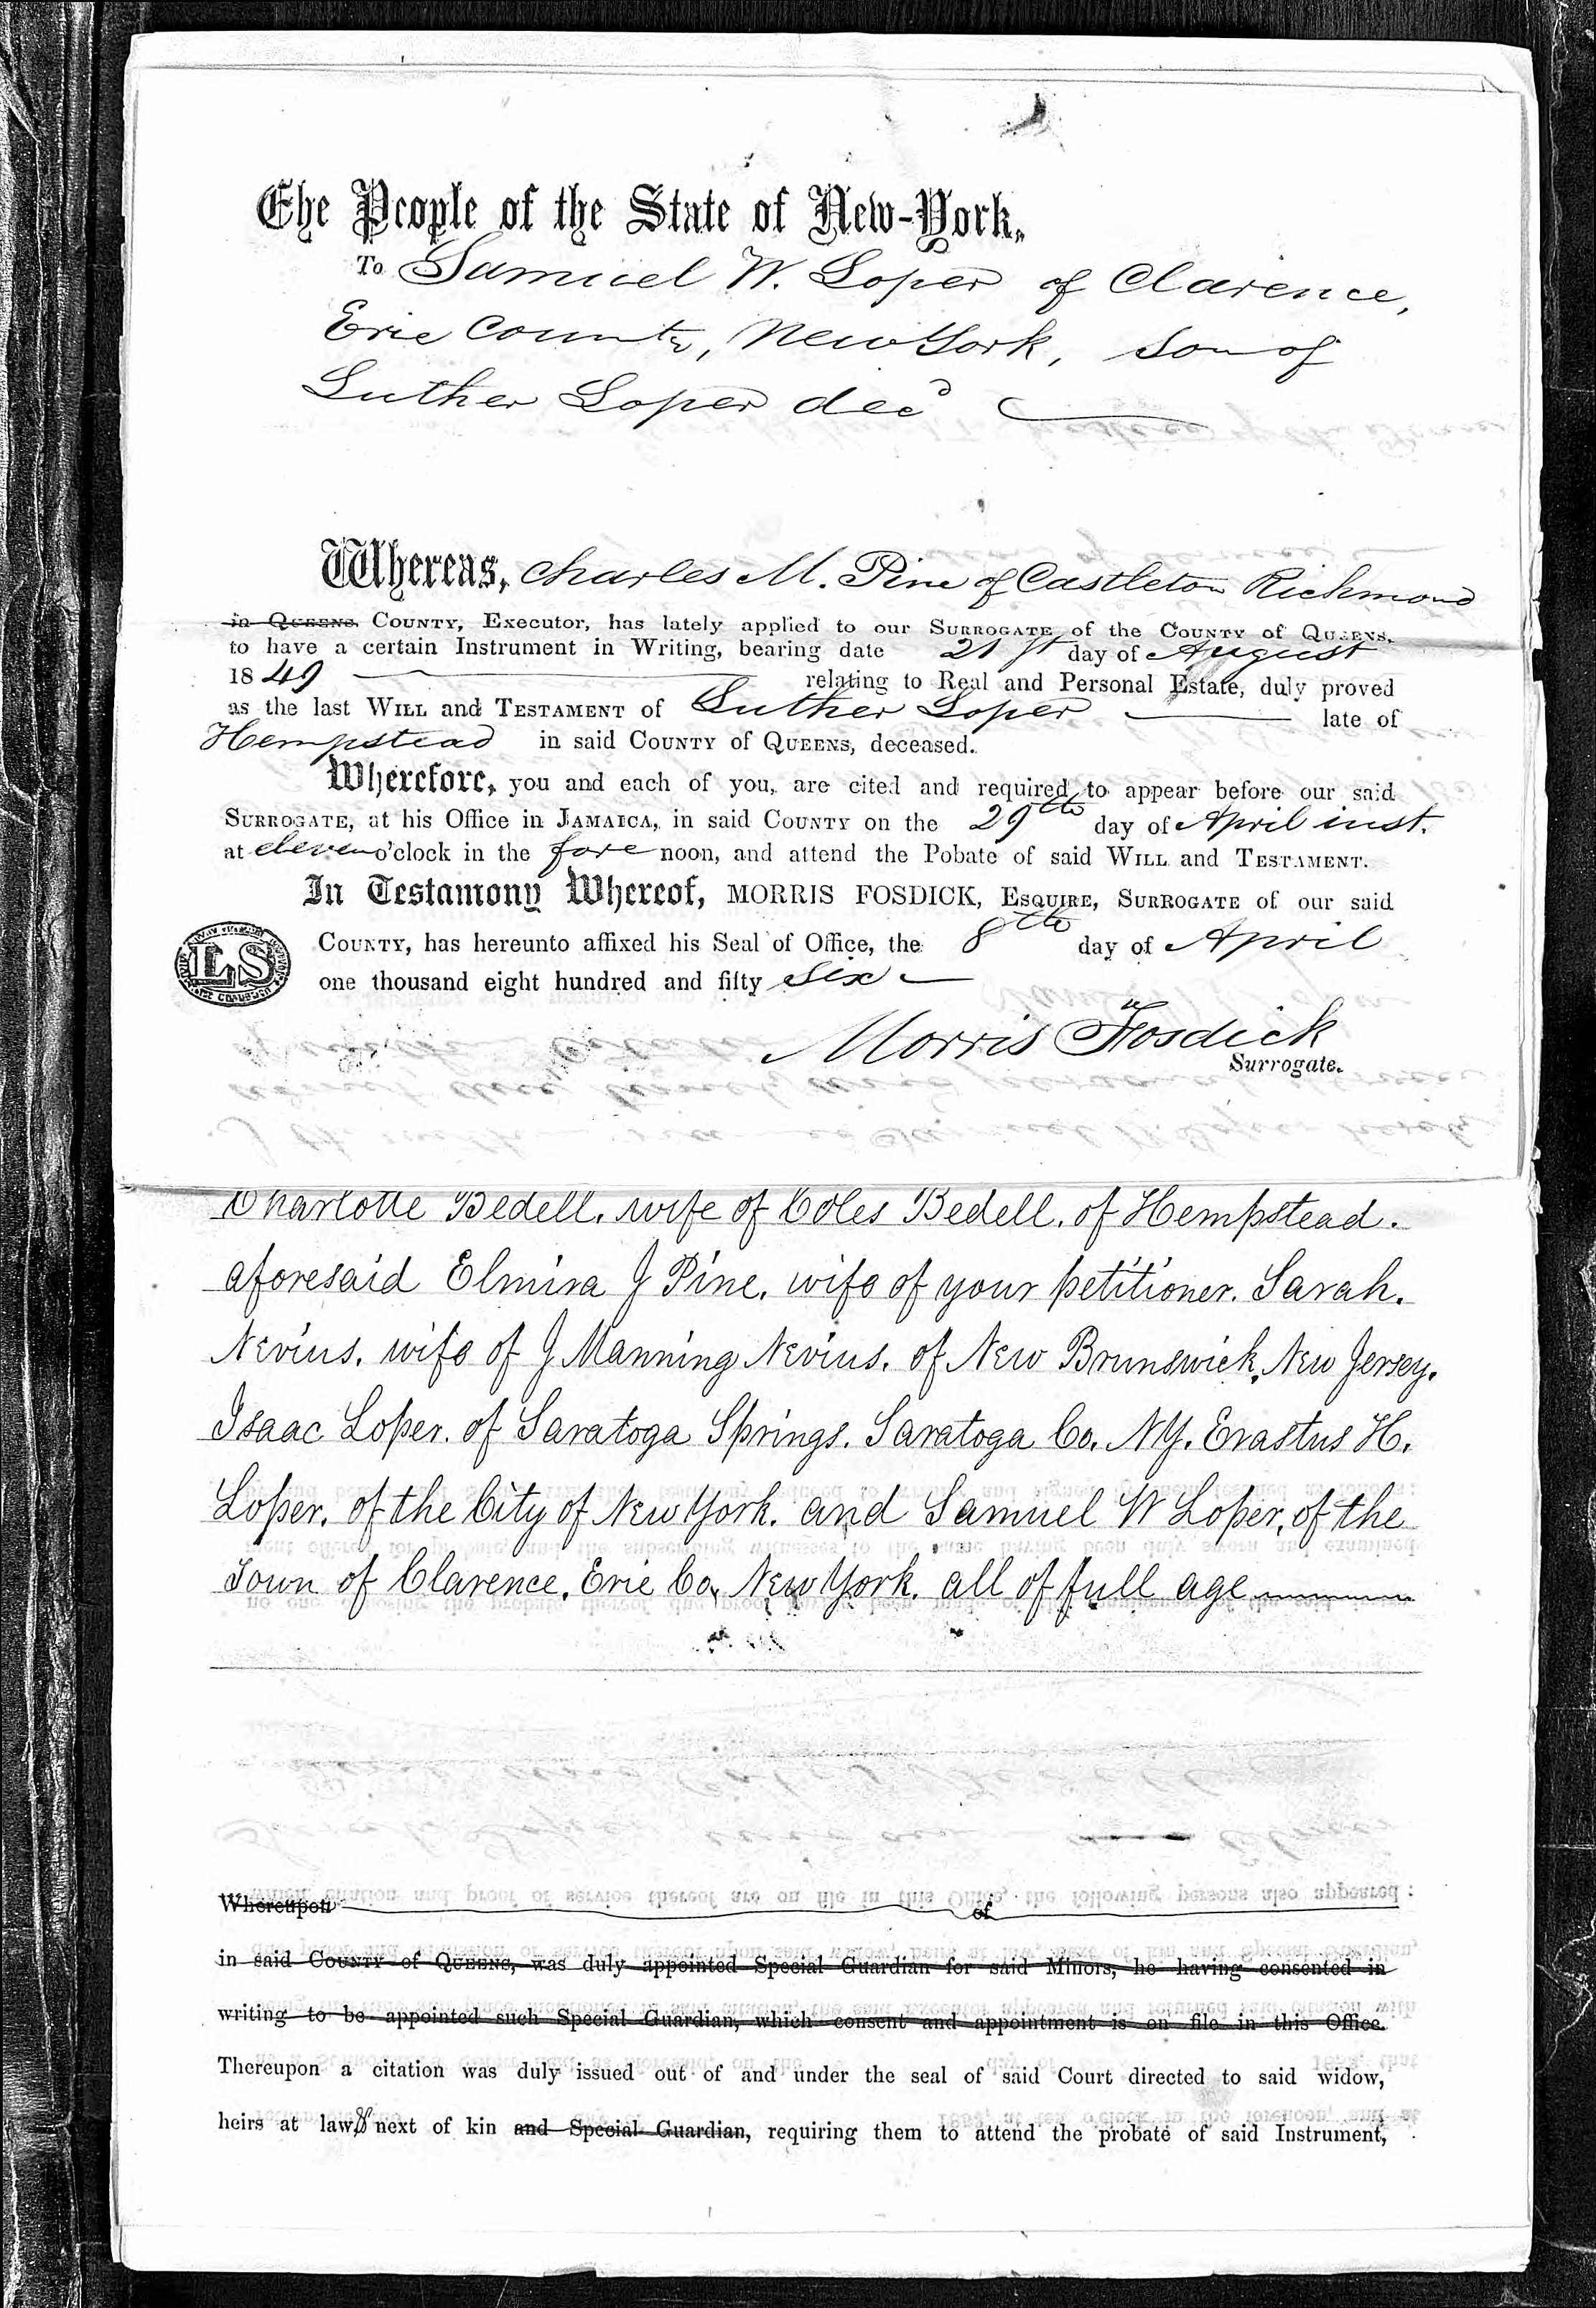 The People of the State of New-York,
To Samuel W. Loper of Clarence,
Erie County, New York, son of
Luther Loper decd
Whereas, Charles M. Pine of Castleton Richmond
in Queens County, Executor, has lately applied to our Surrogate of the County of Queens,
to have a certain Instrument in Writing, bearing date 21st day of August
1849 relating to Real and Personal Estate, duly proved
as the last Will and Testament of Luther Loper late of
Hempstead in said County of Queens, deceased.
Wherefore, you and each of you, are cited and required to appear before our said
Surrogate, at his Office in Jamaica, in said County on the 29th day of April inst.
at eleven o'clock in the fore noon, and attend the Pobate of said Will and Testament.
In Testamony Whereof, MORRIS FOSDICK, Esquire, Surrogate of our said
County, has hereunto affixed his Seal of Office, the 8th day of April
LS
one thousand eight hundred and fifty six
Morris Fosdick
Surrogate.
Charlotte Bedell. wife of Coles Bedell. of Hempstead.
aforesaid Elmira J Pine. wife of your petitioner. Sarah.
Nevius. wife of J Manning Nevius. of New Brunswick, New Jersey.
Isaac Loper. of Saratoga Springs. Saratoga Co. NY. Erastus H.
Loper. of the City of New York. and Samuel W Loper, of the
Town of Clarence, Erie Co, New York. all of full age
Whereupon of
in said County of Queens, was duly appointed Special Guardian for said Minors, he having consented in
writing to be appointed such Special Guardian, which consent and appointment is on file in this Office.
Thereupon a citation was duly issued out of and under the seal of said Court directed to said widow,
heirs at law, & next of kin and Special Guardian, requiring them to attend the probate of said Instrument,